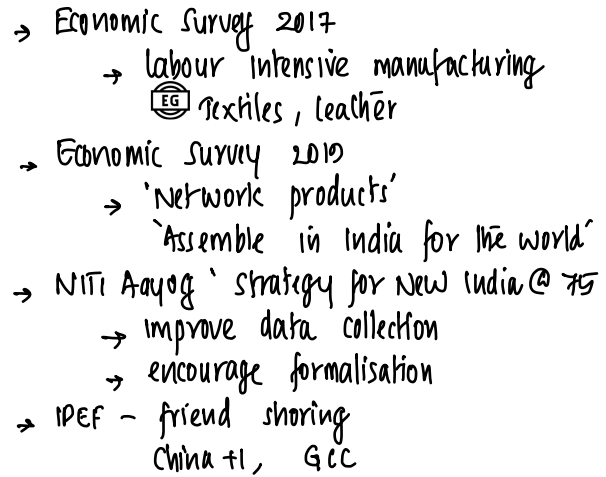 → Economic Survey 2017
→ labour intensive manufacturing
EG Textiles, leather
→ Economic Survey 2019
→ 'Network products'
'Assemble in India for the world'
→ NITI Aayog ' strategy for New India @ 75
→ improve data collection
→ encourage formalisation
→ IPEF – friend shoring
China +1, GCC